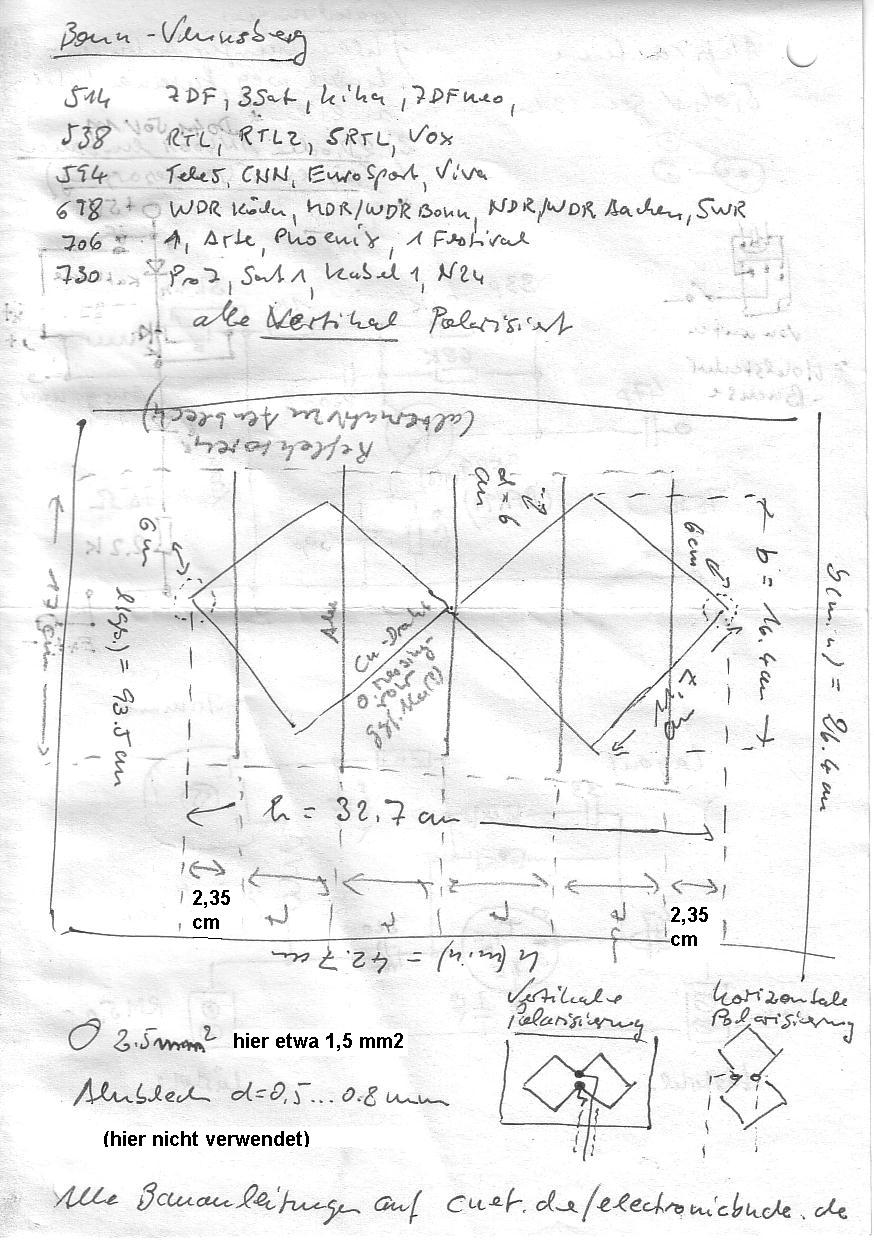 Bonn - Venusberg
514 ZDF, 3Sat, Kika, ZDFneo,
538 RTL, RTL2, SRTL, VOX
594 Tele5, CNN, EuroSport, Viva
698 WDR Köln, MDR/WDR Bonn, NDR/WDR Aachen, SWR
706 1, Arte, Phoenix, 1 Festival
730 Pro7, Sat1, Kabel 1, N24
alle Vertikal Polarisiert
Reflektoren
(alternativ zu Alublech)
d=6
cm
6cm
6cm
b = 16.4cm
b(min) = 26.4 cm
l(ges.) = 93.5 cm
Alu
Cu-Draht
o. Messing-
rohr
ggf. Alu(?)
h = 32.7 cm
2,35
cm
7
7
7
7
2,35
cm
h(min) = 42.7cm
Vertikale
Polarisierung
Horizontale
Polarisierung
2.5mm²
hier etwa 1,5 mm2
Alublech d=0,5...0.8mm
(hier nicht verwendet)
Alle Bauanleitungen auf cuet.de/electronicbude.de